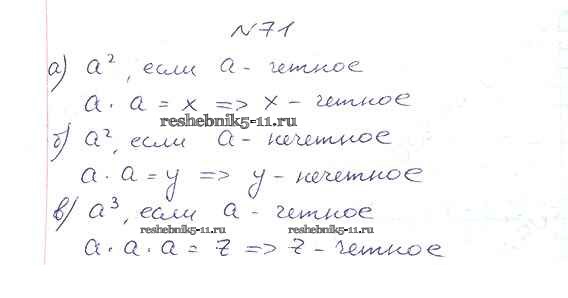 №71
а) a², если a - четное
a · a = x => x - четное
reshebnik5-11.ru
б) a², если a - нечетное
a · a = y => y - нечетное
в) a³, если a - четное
reshebnik5-11.ru reshebnik5-11.ru
a · a · a = z => z - четное